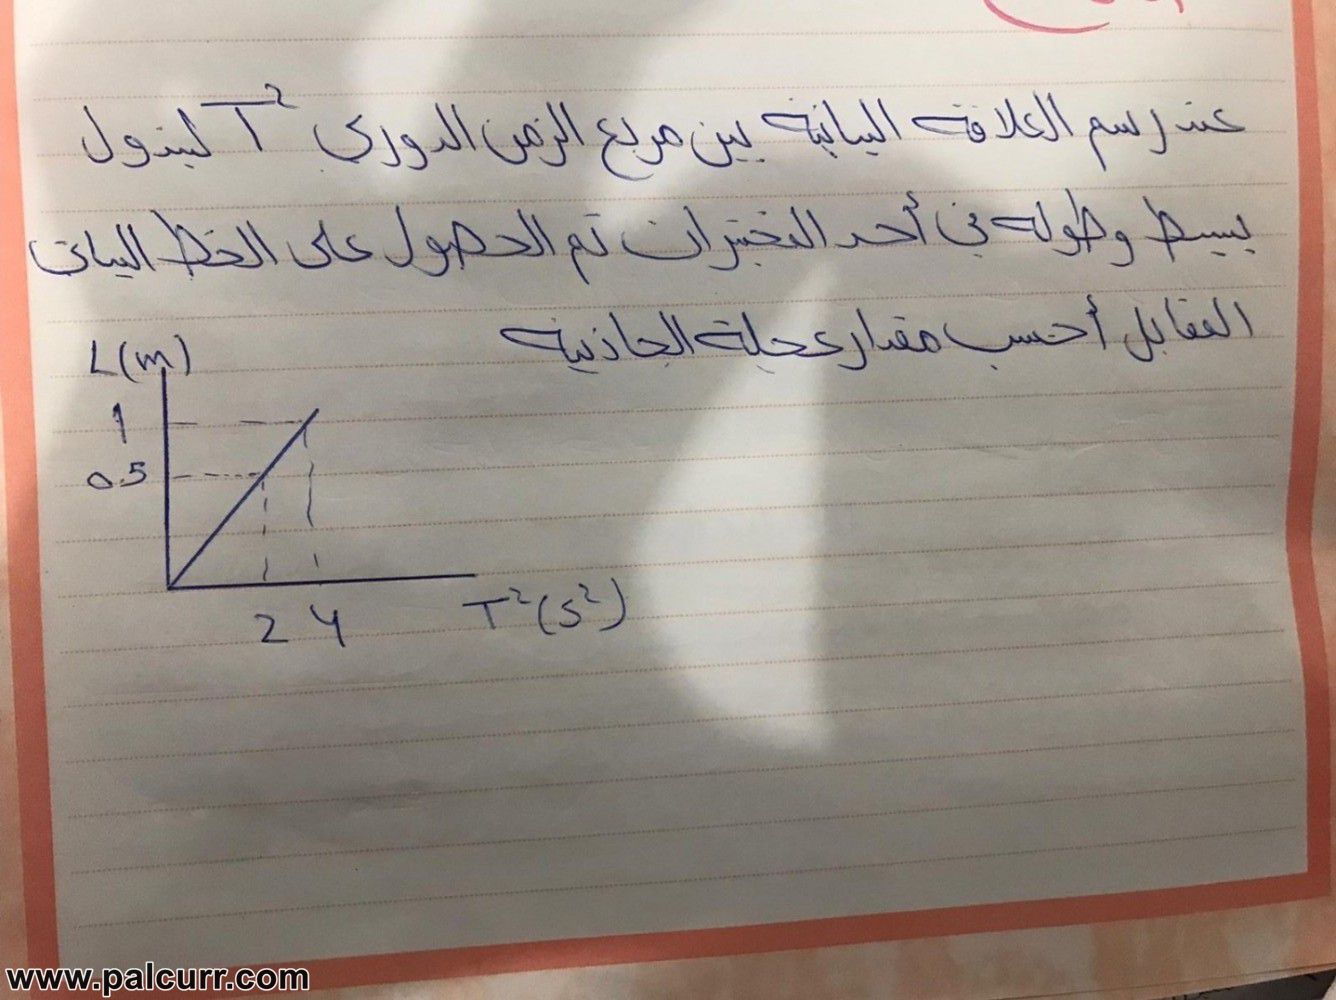 عند رسم العلاقة البيانية بين مربع الزمن الدوري T² لبندول
بسيط وطوله في أحد المختبرات تم الحصول على الخط البياني
المقابل أحسب مقدار عجلة الجاذبية
L(m)
1
0.5
2 4 T²(s²)
www.palcurr.com